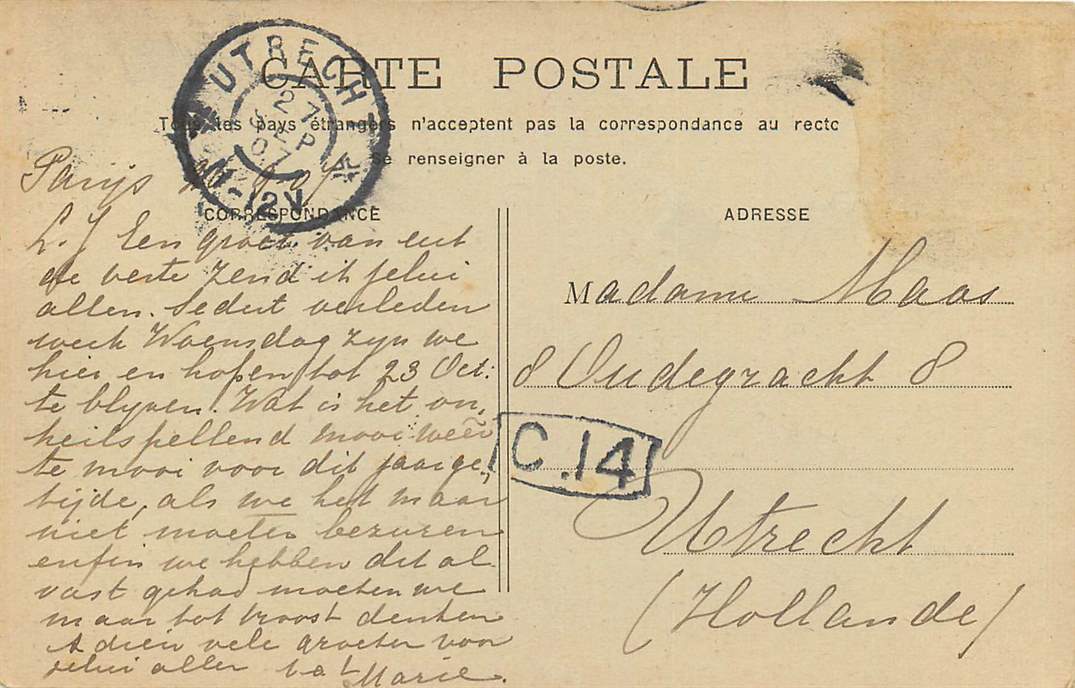 CARTE POSTALE
Tous les pays étrangers n'acceptent pas la correspondance au recto
Se renseigner à la poste.
UTRECHT
27
SEP
07
11-12V
CORRESPONDANCE
ADRESSE
Parijs
L. J Een groet van uit
de verte zend ik jelui
allen. Sedert verleden
week Woensdag zyn we
hier en hopen tot 23 Oct:
te blyven. Wat is het on,
heilspellend mooi weêr
te mooi voor dit jaarge,
tijde, als we het maar
niet moeten bezuren
enfin we hebben dit al
vast gehad moeten we
maar tot troost denken
Adieu vele groeten voor
jelui allen Marie.
Madame Maas
8 Oudegracht 8
C.14
Utrecht
(Hollande)